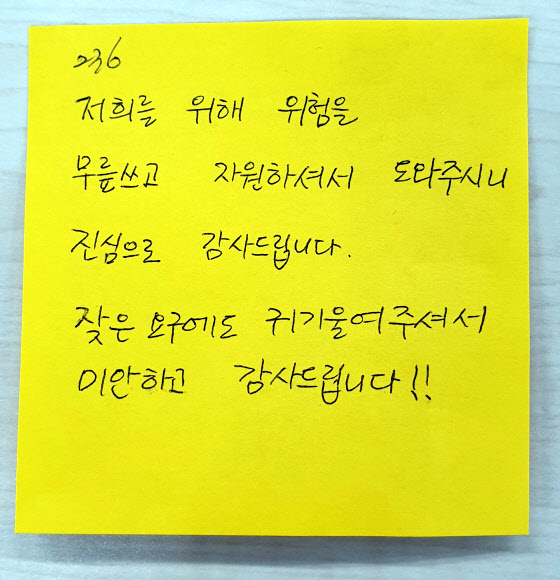 236
저희를 위해 위험을
무릎쓰고 자원하셔서 도와주시니
진심으로 감사드립니다.
잦은 요구에도 귀기울여주셔서
미안하고 감사드립니다!!